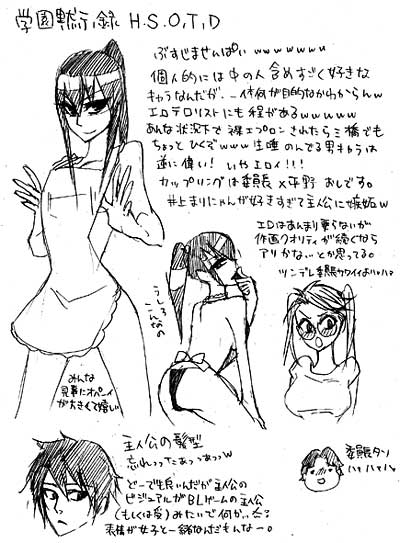 学園黙示録 H.S.O.T.D
ぶすじませんぱい wwwwwww
個人的には中の人含めすごく好きな
キャラなんだが、、一体何が目的なかわからんw
エロテロリストにも程があるwwwww
あんな状況下で裸エプロンされたら三橋でも
ちょっとひくぞwww生唾のんでる男キャラは
逆に偉い! いやエロイ!!!
カップリングは委員長×平野 おしです。
井上まりにゃんが好きすぎて主人公に嫉妬w
エロはあんまり要らないが
作画クオリティが続くなら
アリかな、とか思ってる。
ツンデレ委員長カワイイよハァハァ
うしろこんなの
みんな
見事にオパーイ
が大きくて嬉しい
主人公の髪型
忘れっったあっつあっつw
どーでも良いんだが主人公の
ビジュアルがBLゲームの主人公
(もしくは受)みたいで何か…
表情が女子と一緒なんだもんなー。
委員長タン
ハァハァハァ